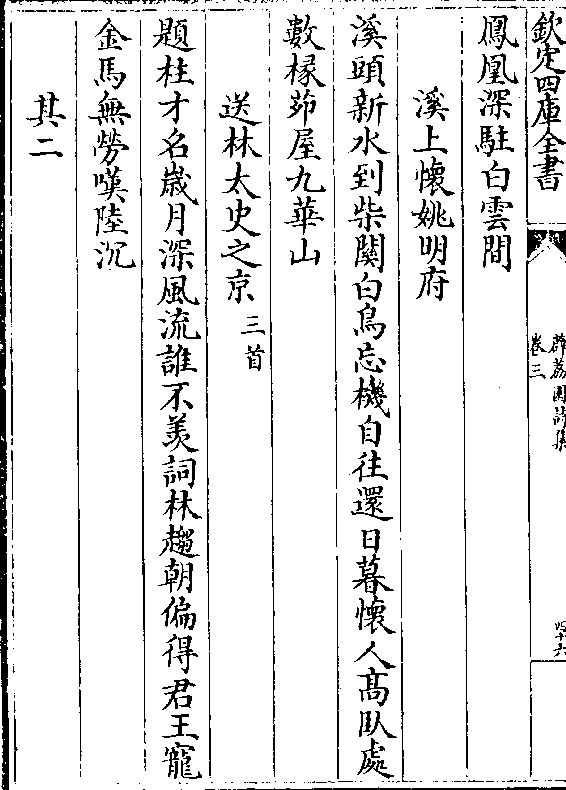 欽定四庫全書
薜荔園詩集
卷三
四十六
鳳凰深駐白雲間
溪上懷姚明府
溪頭新水到柴關白鳥忘機自往還日暮懷人髙臥處
數椽茆屋九華山
送林太史之京三首
題柱才名嵗月深風流誰不羡詞林趨朝偏得君王寵
金馬無勞嘆陸沉
其二